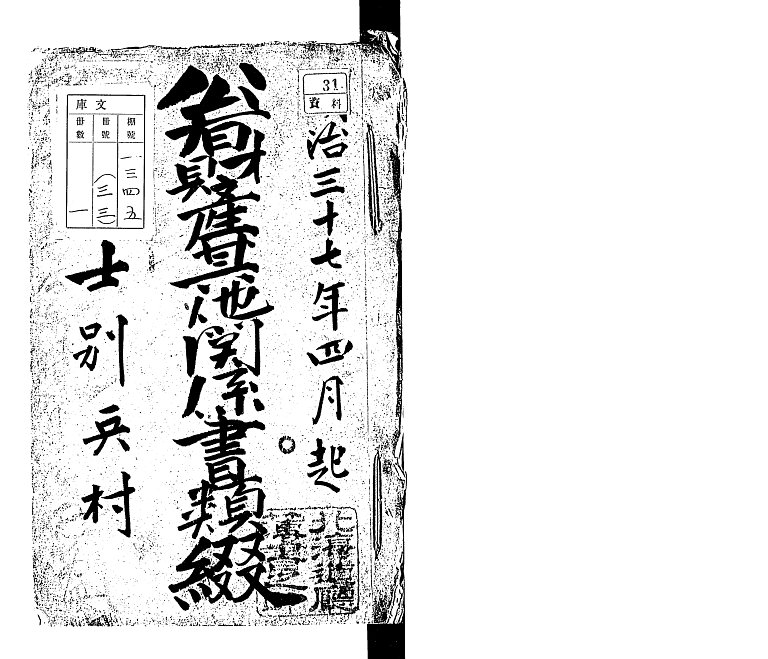 31
資料
治三十七年四月起
公有財産其他関係書類綴
士別兵村
文庫
棚號
一三四五
冊號
(三三)
冊數
一
北海道廳